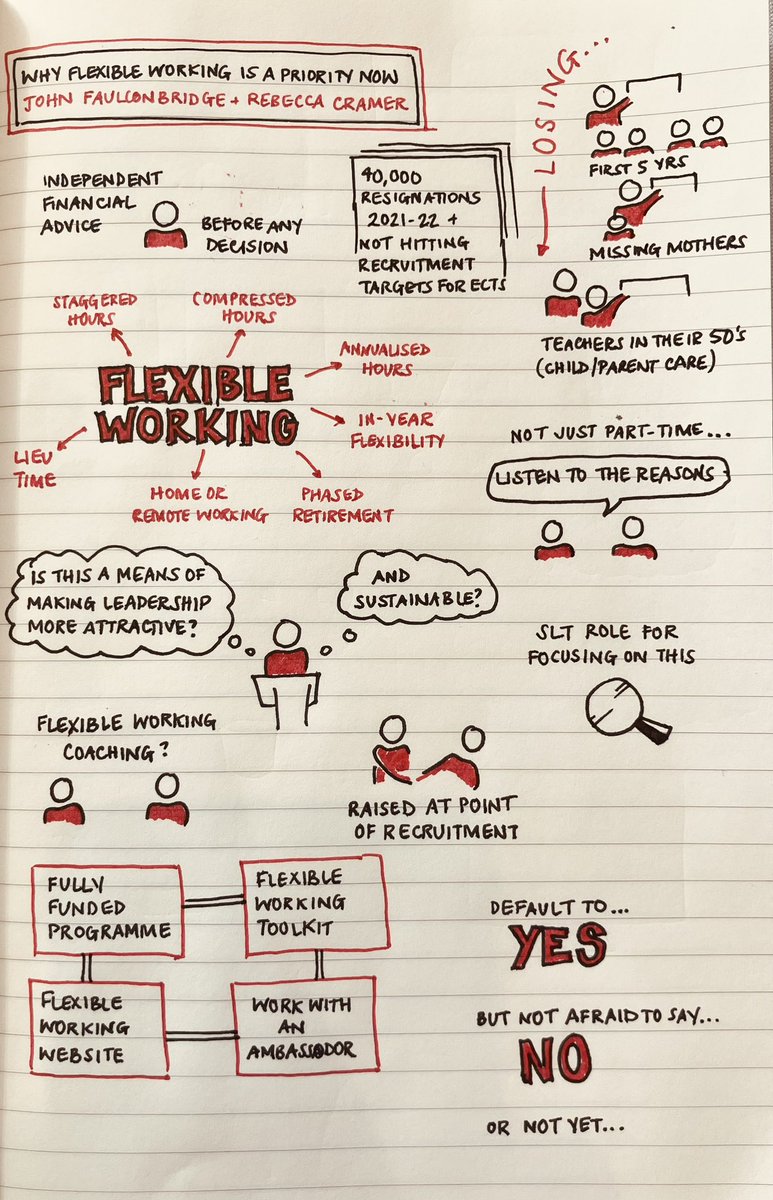 WHY FLEXIBLE WORKING IS A PRIORITY NOW
JOHN FAULCONBRIDGE + REBECCA CRAMER
INDEPENDENT
FINANCIAL
ADVICE
BEFORE ANY
DECISION
40,000
RESIGNATIONS
2021-22 +
NOT HITTING
RECRUITMENT
TARGETS FOR ECTS
LOSING...
FIRST 5 YRS
MISSING MOTHERS
TEACHERS IN THEIR 50'S
(CHILD/PARENT CARE)
STAGGERED
HOURS
COMPRESSED
HOURS
ANNUALISED
HOURS
FLEXIBLE
WORKING
IN-YEAR
FLEXIBILITY
LIEU
TIME
HOME OR
REMOTE WORKING
PHASED
RETIREMENT
NOT JUST PART-TIME...
LISTEN TO THE REASONS
IS THIS A MEANS OF
MAKING LEADERSHIP
MORE ATTRACTIVE?
AND
SUSTAINABLE?
SLT ROLE FOR
FOCUSING ON THIS
FLEXIBLE WORKING
COACHING?
RAISED AT POINT
OF RECRUITMENT
FULLY
FUNDED
PROGRAMME
FLEXIBLE
WORKING
TOOLKIT
FLEXIBLE
WORKING
WEBSITE
WORK WITH
AN
AMBASSADOR
DEFAULT TO...
YES
BUT NOT AFRAID TO SAY...
NO
OR NOT YET...